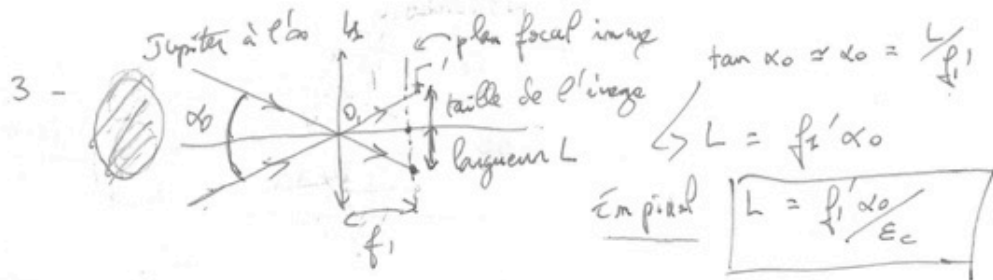 3 -
Jupiter à l'∞
L1
plan focal image
F'
taille de l'image
largueur L
α0
O1
f1'
tan α0 ≃ α0 = L/f1'
↳ L = f1' α0
En pixel
L = f1' α0 / εc